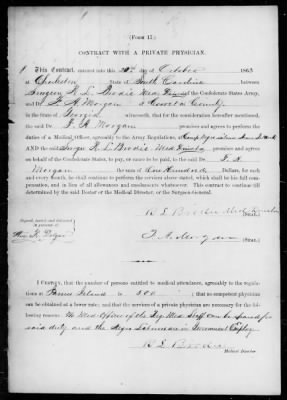 (Form 15.)
CONTRACT WITH A PRIVATE PHYSICIAN.
This Contract, entered into this day of October 1863
at Charleston State of South Carolina between
Surgeon R L Brodie Med of the Confederate States Army,
and Dr. F. A. Morgan of Coweta County
in the State of Georgia witnesseth, that for the consideration hereafter mentioned,
the said Dr. F. A. Morgan promises and agrees to perform the
duties of a Medical Officer, agreeably to the Army Regulations,
AND the said Surgn R L Brodie Med promises and agrees
on behalf of the Confederate States, to pay, or cause to be paid, to the said Dr F. A.
Morgan the sum of One Hundred Dollars, for each
and every month, he shall continue to perform the services above stated, which shall be his full com-
pensation, and in lieu of all allowances and emoluments whatsoever. This contract to continue till
determined by the said Doctor or the Medical Director, or the Surgeon-General.
R L Brodie Med Director
[Seal.]
Signed, sealed and delivered
in presence of
F. A. Morgan
[Seal.]
I CERTIFY, that the number of persons entitled to medical attendance, agreeably to the regula-
tions at James Island is 500 that no competent physician
can be obtained at a lower rate; and that the services of a private physician are necessary for the
following reasons: No Med Officer of the Med Staff can be spared for
said duty and the Negro Laborers in Government Employ
R L Brodie
Medical Director